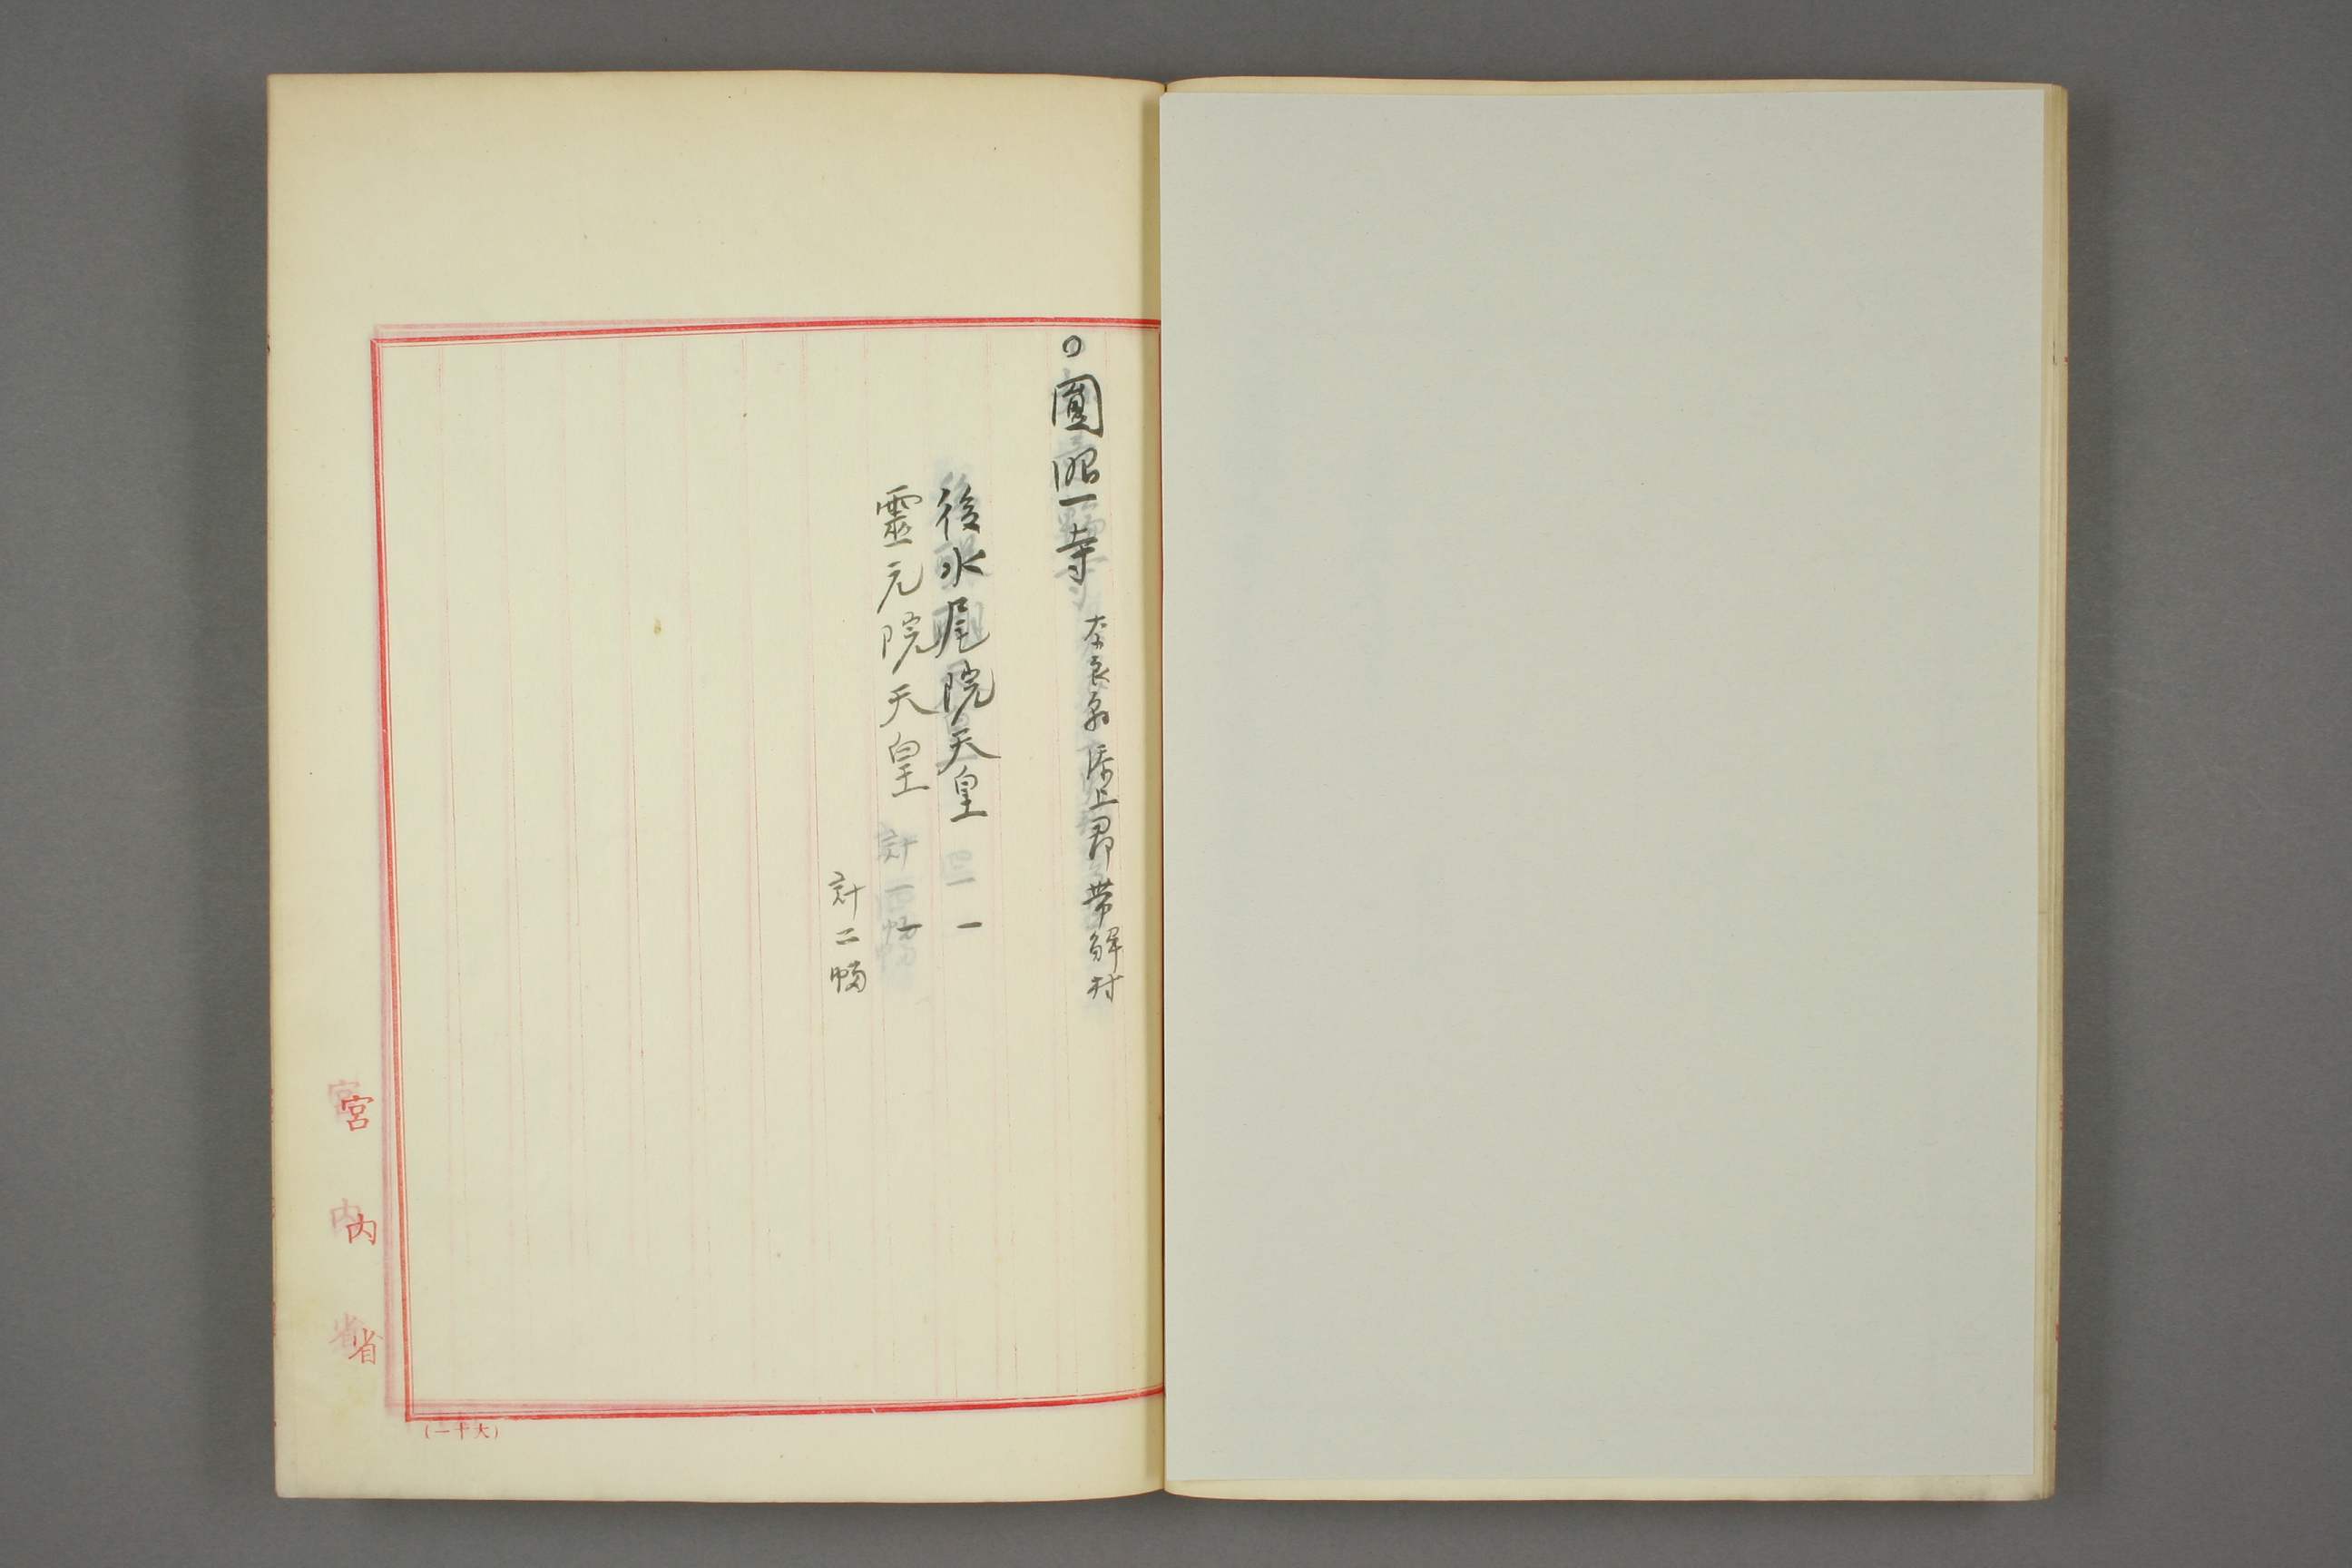 ○圓照寺 奈良縣添上郡帶解村
後水尾院天皇 一
靈元院天皇 一
計二幅
宮内省
(一十大)